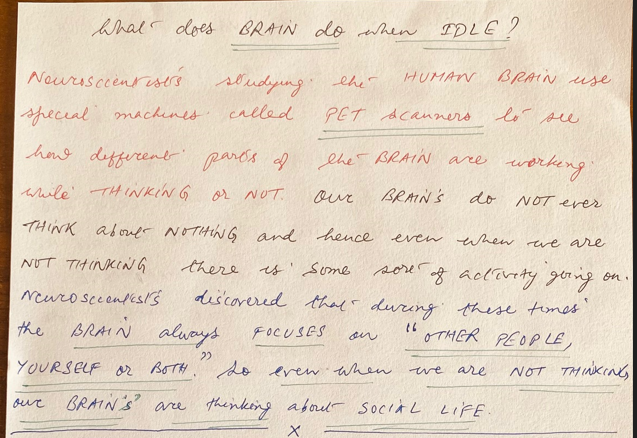 What does BRAIN do when IDLE?
Neuroscientists studying the HUMAN BRAIN use
special machines called PET scanners to see
how different parts of the BRAIN are working
while THINKING or NOT. Our BRAIN's do NOT ever
THINK about NOTHING and hence even when we are
NOT THINKING there is some sort of activity going on.
Neuroscientists discovered that during these times
the BRAIN always FOCUSES on "OTHER PEOPLE,
YOURSELF or BOTH." So even when we are NOT THINKING
our BRAIN's are thinking about SOCIAL LIFE.
x